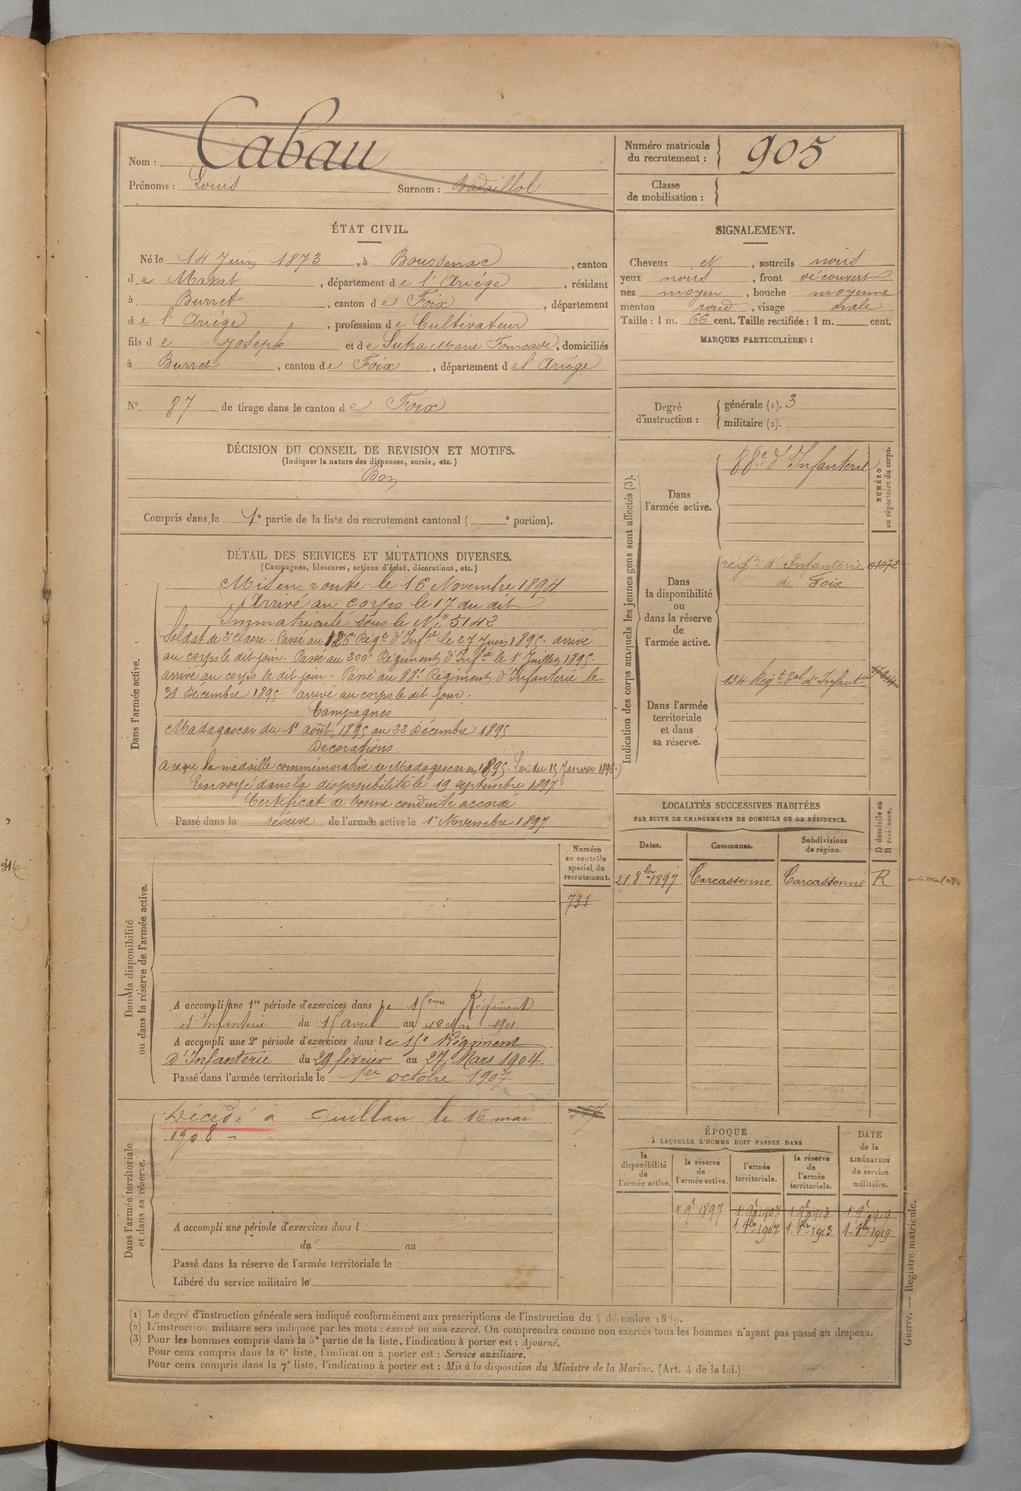 Nom : Cabau
Prénoms : Louis Surnom :
Numéro matricule du recrutement : 905
Classe de mobilisation :
ÉTAT CIVIL.
Né le 14 Juin 1873, à Boussenac, canton
de Massat, département de l'Ariége, résidant
à Burret, canton de Foix, département
de l'Ariége, profession de Cultivateur
fils de Joseph et de Marie Fourcade, domiciliés
à Burret, canton de Foix, département de l'Ariége
N° 87 de tirage dans le canton de Foix
SIGNALEMENT.
Cheveux et, sourcils noirs
yeux noirs, front découvert
nez moyen, bouche moyenne
menton rond, visage ovale
Taille : 1 m. 66 cent. Taille rectifiée : 1 m. cent.
MARQUES PARTICULIÈRES :
Degré d'instruction : générale (1). 3
militaire (2).
DÉCISION DU CONSEIL DE REVISION ET MOTIFS.
(Indiquer la nature des dispenses, sursis, etc.)
Bon
Compris dans la 1e partie de la liste du recrutement cantonal ( e portion).
DÉTAIL DES SERVICES ET MUTATIONS DIVERSES.
(Campagnes, blessures, actions d'éclat, décorations, etc.)
Dans l'armée active.
Mis en route le 16 Novembre 1894
Arrivé au corps le 17 du dit
Immatriculé sous le N° 5142
Soldat de 2e classe. Passé au Régt d'Infie le 27 Juin 1895. arrivé
au corps le dit jour. Passé au 200e Régiment d'Infie le 1er Juillet 1895.
arrivé au corps le dit jour. Passé au 88e Régiment d'Infanterie le
31 Décembre 1895. arrivé au corps le dit jour.
Campagnes
Madagascar du 1er août 1895 au 22 Décembre 1895
Décorations
A reçu la médaille commémorative de Madagascar en 1895. Loi du 15 Janvier 1896.
Envoyé dans la disponibilité le 19 septembre 1897
Certificat de bonne conduite accordé
Passé dans la réserve de l'armée active le 1er Novembre 1897
Indication des corps auxquels les jeunes gens sont affectés (3).
NUMÉRO au répertoire du corps.
Dans l'armée active.
88e d'Infanterie
Dans la disponibilité ou dans la réserve de l'armée active.
régt d'Infanterie
de Foix
Dans l'armée territoriale et dans sa réserve.
134 Régt d'Infanterie
LOCALITÉS SUCCESSIVES HABITÉES
PAR SUITE DE CHANGEMENTS DE DOMICILE OU DE RÉSIDENCE.
Dates. Communes. Subdivisions de région. D domicile ou R résidence.
21 8bre 1897 Carcassonne Carcassonne R
Dans la disponibilité ou dans la réserve de l'armée active.
Numéro au contrôle spécial du recrutement.
731
A accompli une 1re période d'exercices dans le 15ème Régiment
d'Infanterie du 15 avril au 12 mai 1901
A accompli une 2e période d'exercices dans le 15e Régiment
d'Infanterie du 29 février au 27 Mars 1904.
Passé dans l'armée territoriale le 1er octobre 1907
Dans l'armée territoriale et dans sa réserve.
Décédé à Quillan le 16 mai
1908 -
A accompli une période d'exercices dans l
du au
Passé dans la réserve de l'armée territoriale le
Libéré du service militaire le
ÉPOQUE
À LAQUELLE L'HOMME DOIT PASSER DANS
DATE de la LIBÉRATION du service militaire.
la disponibilité de l'armée active. la réserve de l'armée active. l'armée territoriale. la réserve de l'armée territoriale.
1 9e 1897 1 9e 1907 1 9e 1913 1 9e 1919
1. 8bre 1907 1. 8bre 1913 1. 8bre 1919
(1) Le degré d'instruction générale sera indiqué conformément aux prescriptions de l'instruction du 4 décembre 1889.
(2) L'instruction militaire sera indiquée par les mots : exercé ou non exercé. On comprendra comme non exercés tous les hommes n'ayant pas passé au drapeau.
(3) Pour les hommes compris dans la 5e partie de la liste, l'indication à porter est : Ajourné.
Pour ceux compris dans la 6e liste, l'indication à porter est : Service auxiliaire.
Pour ceux compris dans la 7e liste, l'indication à porter est : Mis à la disposition du Ministre de la Marine. (Art. 4 de la loi.)
Guerre. — Registre matricule.